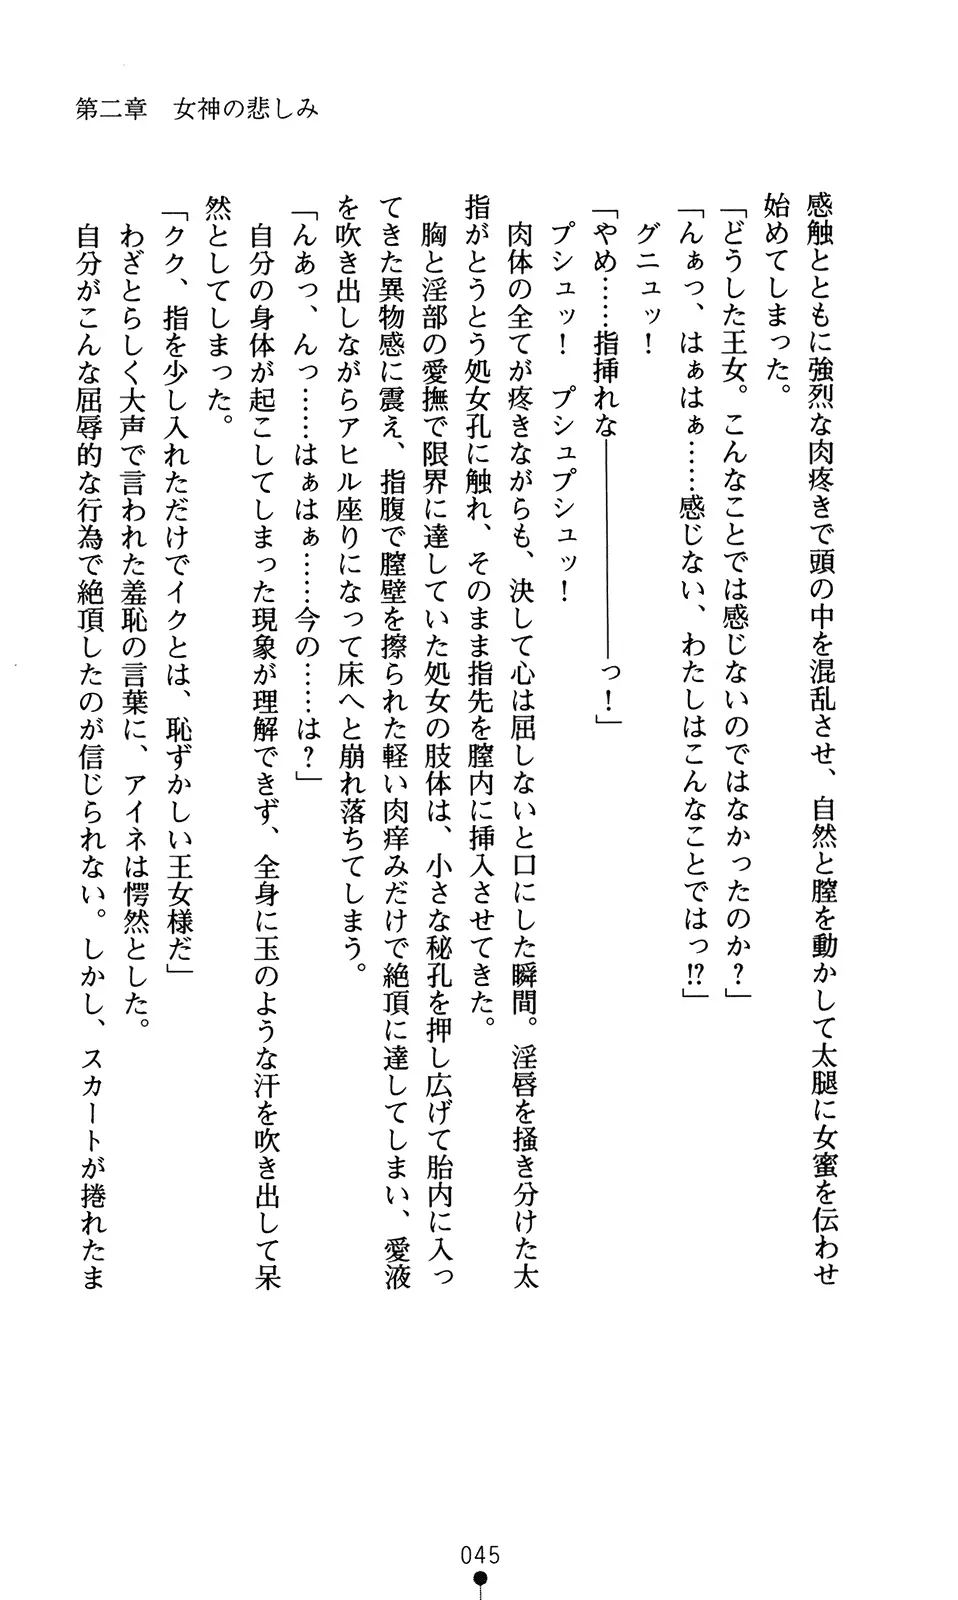 第二章　女神の悲しみ
感触とともに強烈な肉疼きで頭の中を混乱させ、自然と膣を動かして太腿に女蜜を伝わせ
始めてしまった。
「どうした王女。こんなことでは感じないのではなかったのか？」
「んぁっ、はぁはぁ……感じない、わたしはこんなことではっ!?」
グニュッ！
「やめ……指挿れな――――――っ！」
プシュッ！　プシュプシュッ！
肉体の全てが疼きながらも、決して心は屈しないと口にした瞬間。淫唇を掻き分けた太
指がとうとう処女孔に触れ、そのまま指先を膣内に挿入させてきた。
胸と淫部の愛撫で限界に達していた処女の肢体は、小さな秘孔を押し広げて胎内に入っ
てきた異物感に震え、指腹で膣壁を擦られた軽い肉痒みだけで絶頂に達してしまい、愛液
を吹き出しながらアヒル座りになって床へと崩れ落ちてしまう。
「んあっ、んっ……はぁはぁ……今の……は？」
自分の身体が起こしてしまった現象が理解できず、全身に玉のような汗を吹き出して呆
然としてしまった。
「クク、指を少し入れただけでイクとは、恥ずかしい王女様だ」
わざとらしく大声で言われた羞恥の言葉に、アイネは愕然とした。
自分がこんな屈辱的な行為で絶頂したのが信じられない。しかし、スカートが捲れたま
045